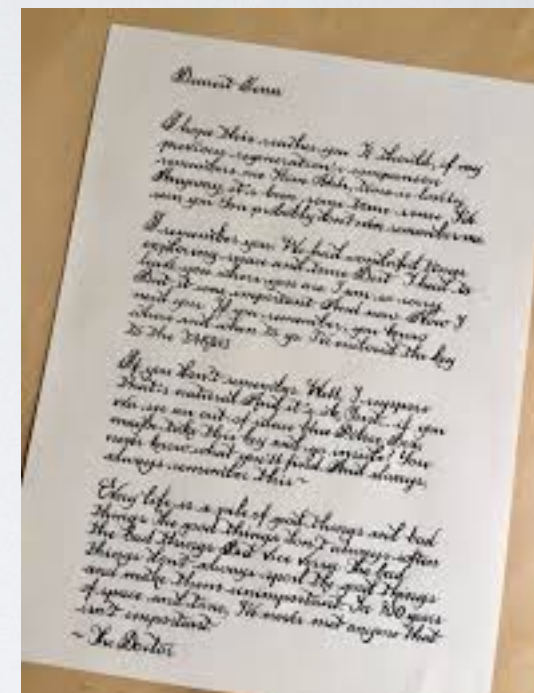 Dearest
I hope this reaches you It should, if my
previous regeneration's companion
remembers me Time
Anyway, it's been some time since I've
seen you You probably don't even remember me
I remember you We had wonderful times
exploring space and time But I had to
leave you where you are I am so sorry
But it was important And now Now I
need you If you remember, you know
where and when to go I've enclosed the key
to the TARDIS
If you don't remember Well, I suppose
that's natural And it's ok Just if you
see an out of place blue Police Box
maybe take this key and go inside? You
never know what you'll find And always,
always remember this~
Every life is a pile of good things and bad
things the good things don't always soften
the bad things But vice versa the bad
things don't always spoil the good things
and make them unimportant In 900 years
of space and time, I've never met anyone that
isn't important
~ The Doctor